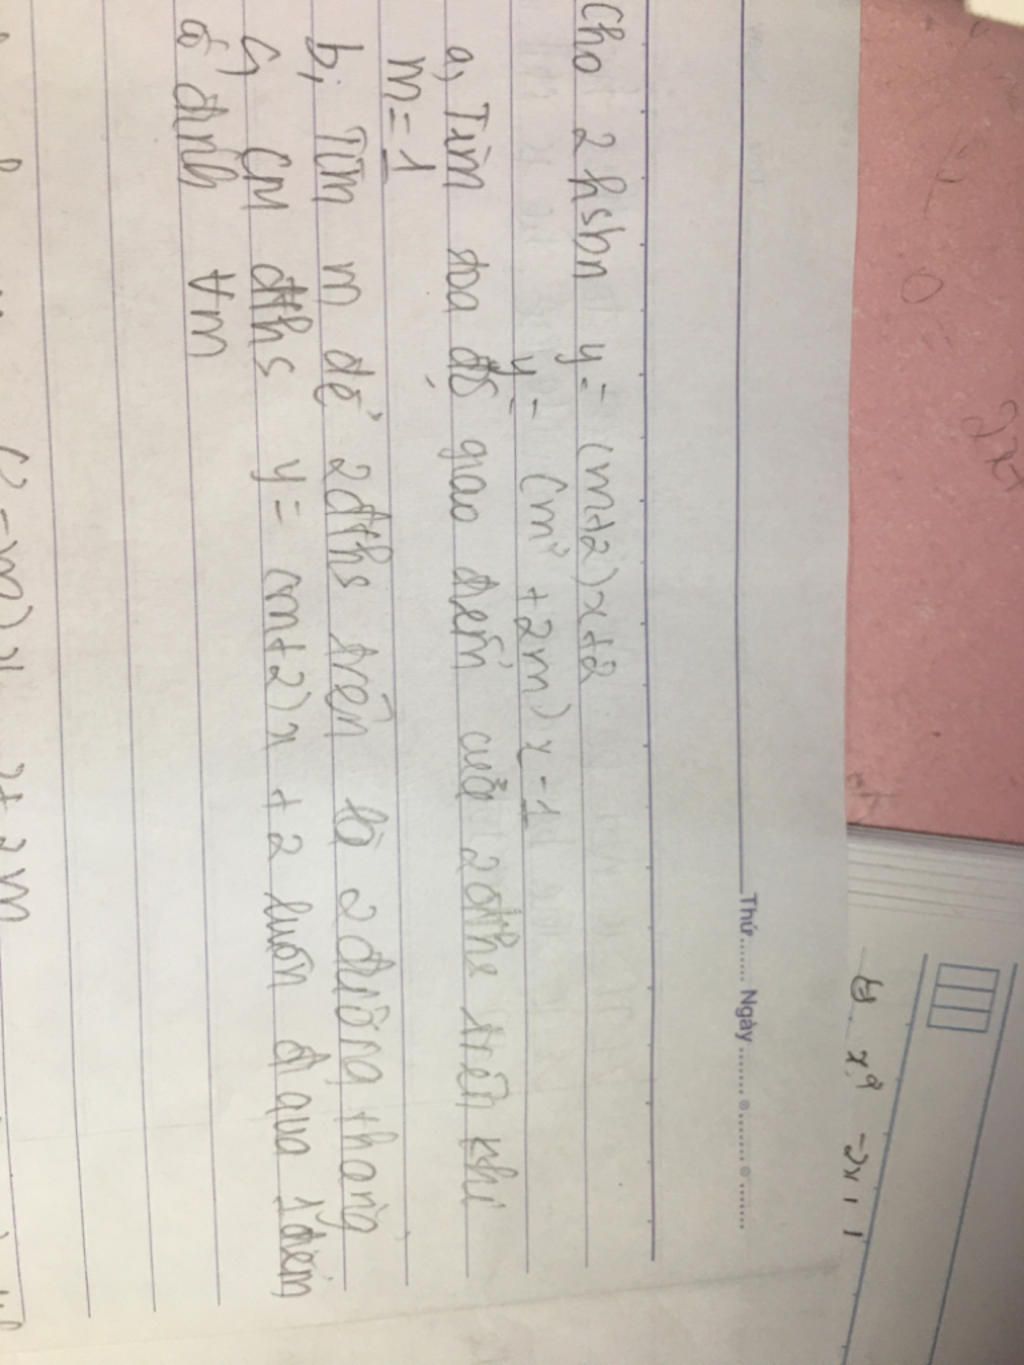 Thứ ........ Ngày ........
Cho 2 hsbn y = (m+2)x+2
y = (m² + 2m) x - 1
a, Tìm toạ độ giao điểm của 2 đths trên khi
m = 1
b, Tìm m để 2 đths trên là 2 đường thẳng
c, CM đths y = (m+2)x + 2 luôn đi qua 1 điểm
cố định ∀m
2x